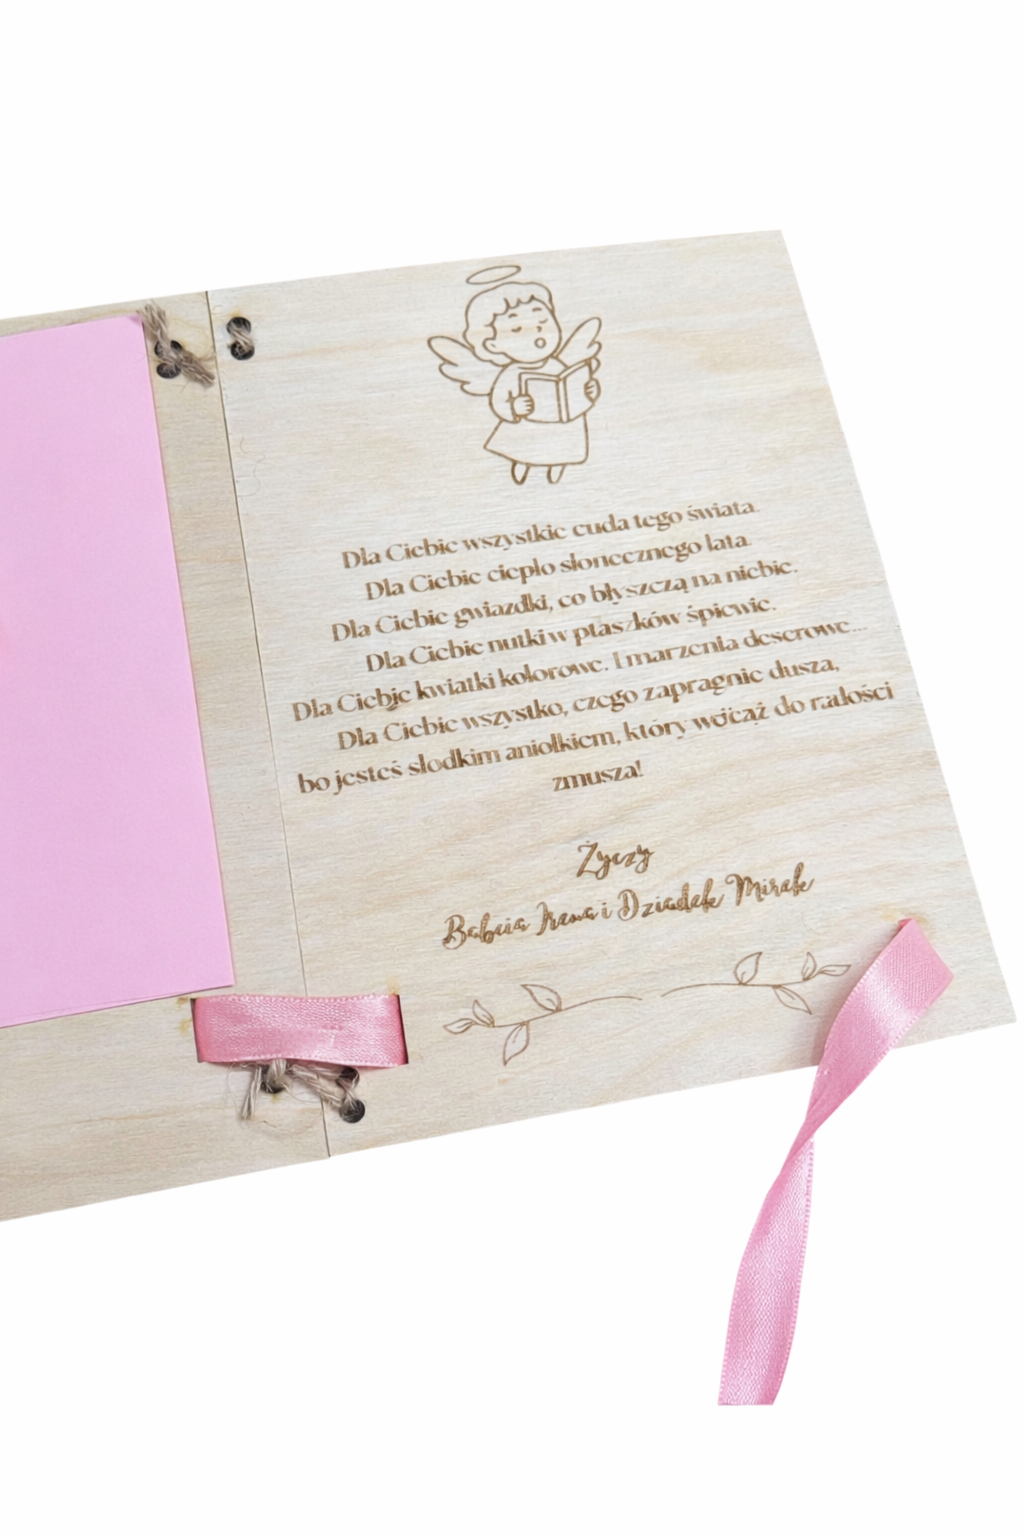 Dla Ciebie wszystkie cuda tego świata.
Dla Ciebie ciepło słonecznego lata.
Dla Ciebie gwiazdki, co błyszczą na niebie.
Dla Ciebie nutki w ptaszków śpiewie.
Dla Ciebie kwiatki kolorowe. I marzenia deserowe...
Dla Ciebie wszystko, czego zapragnie dusza,
bo jesteś słodkim aniołkiem, który wciąż do radości
zmusza!
Życzy
Babcia Irena i Dziadek Mirek